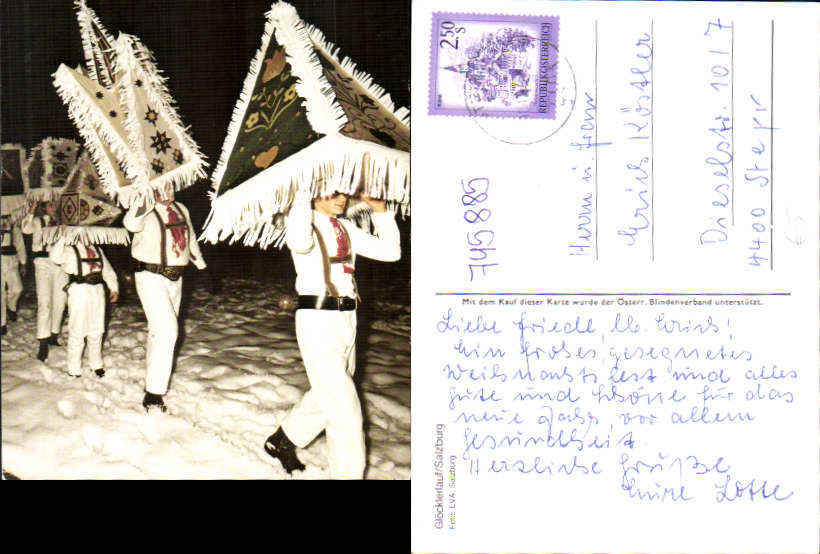 2.50
S
REPUBLIK ÖSTERREICH
745885
Herrn u. Frau
Erich Köstler
Dieselstr. 1017
4400 Steyr
Mit dem Kauf dieser Karte wurde der Österr. Blindenverband unterstützt.
Liebe Friedl lb. Erich!
Ein frohes, gesegnetes
Weihnachtsfest und alles
Gute und Schöne für das
neue Jahr, vor allem
Gesundheit.
Herzliche Grüße
Eure Lotte
Glöcklerlauf/Salzburg
Foto: LVA Salzburg